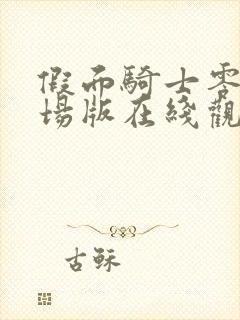 假面騎士零
場版在綫觀
古稣